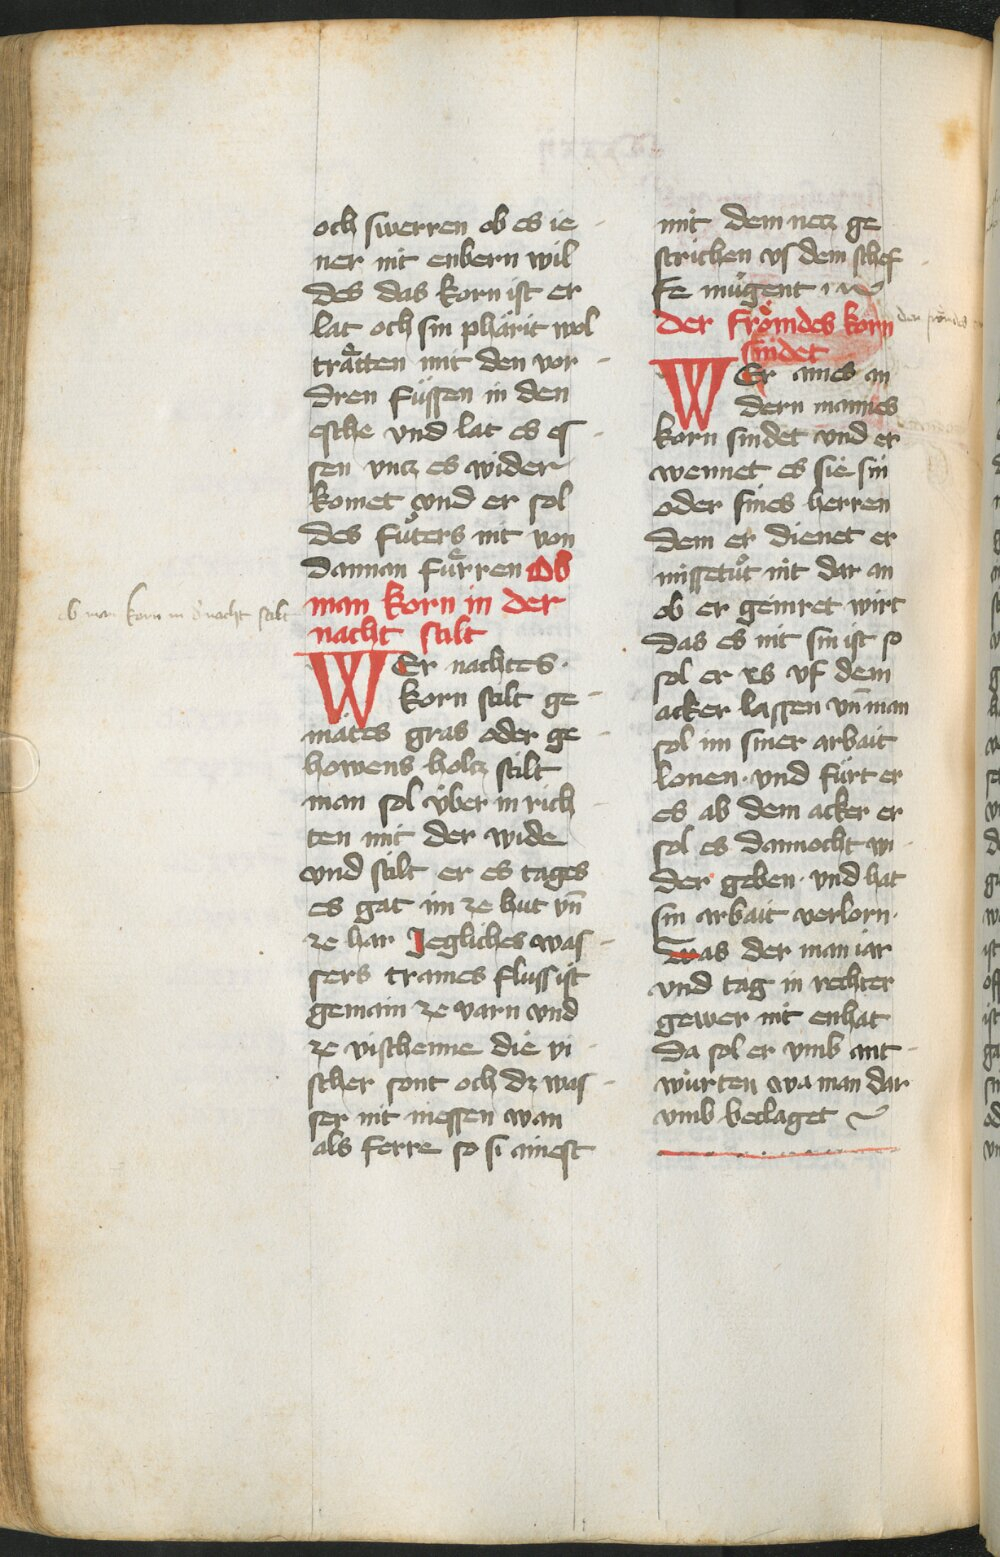 och swerren ob es ie
ner nit enbern wil
des das korn ist er
lat och sin phärit wol
trätten mit den vor
dren füssen in den
esche vnd lat es es
sen vncz es wider
komet vnd er sol
des fůters nit von
dannan fürren Ob
man korn in der
nacht stilt
ob man korn in d nacht stilt
WEr nachtes
korn stilt ge
mätes gras oder ge
howens holcz stilt
man sol über in rich
ten mit der wide
vnd stilt er es tages
es gat im ze hut vn̄
ze har Jegliches was
sers trames fluss ist
gemain ze varn vnd
ze vischenne die vi
scher sont och dz was
ser nit niessen wan
als ferre so si ainest
mit dem necz ge
strichen vs dem schef
fe mügent
der frömdes korn
sindet
WEr aines an
dern mannes
korn sindet vnd er
wennet es sie sin
oder sines herren
dem er dienet er
missetůt nit dar an
ob er geinret wirt
das es nit sin ist so
sol er es vf dem
acker lassen vn̄ man
sol im siner arbait
lonen · vnd fürt er
es ab dem acker er
sol es dannocht wi
der geben · vnd hat
sin arbait verlorn ·
Was der man iar
vnd tag in rechter
gewer nit enhat
da sol er vmb ant
würten wa man dar
vmb beclaget